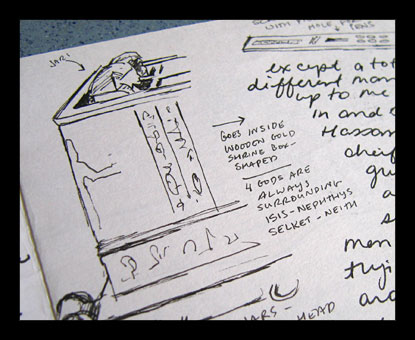 JARS
HOLE
LENS
GOES INSIDE
WOODEN GOLD
SHRINE BOX-
SHAPED
4 GODS ARE
ALWAYS
SURROUNDING
ISIS-NEPHTHYS
SELKET-NEITH
HEAD
except a tot
different man
up to me
in and
Hassan
cheif
gu
a
s
men
tryi
aro